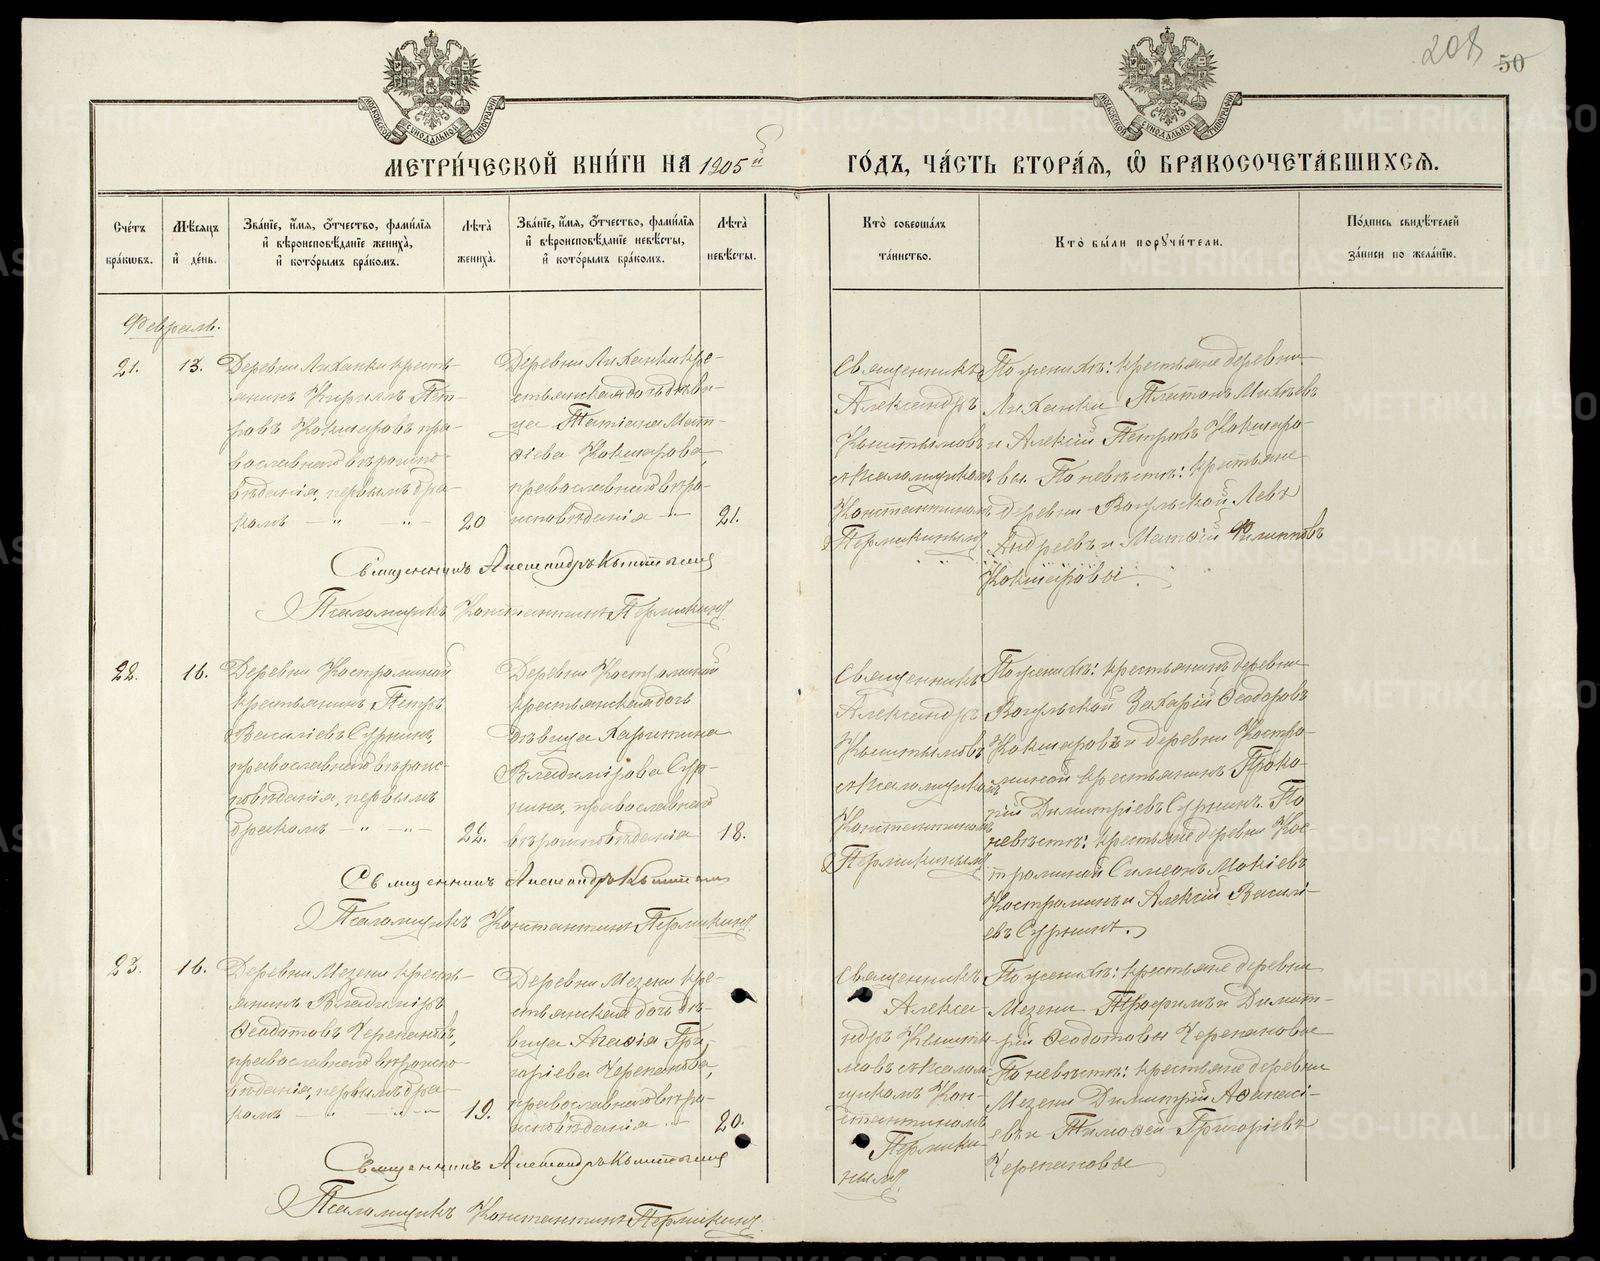 208 50
МОСКОВСКОЙ СѴНОДАЛЬНОЙ ТИПОГРАФІИ
МОСКОВСКОЙ СѴНОДАЛЬНОЙ ТИПОГРАФІИ
МЕТРИ́ЧЕСКОЙ КНИ́ГИ НА 1905й ГО́ДЪ, ЧА́СТЬ ВТОРА́Я, Ѡ҆ БРАКОСОЧЕТА́ВШИХСѦ.
Сче́тъ бра́кѡвъ.
Мѣ́сяцъ и҆ де́нь.
Зва́нїе, и҆́мя, ѻ҆́тчество, фами́лїя и҆ вѣроисповѣ́данїе жениха̀, и҆ кото́рымъ бра́комъ.
Лѣ́та̀ жениха̀.
Зва́нїе, и҆́мя, ѻ҆́тчество, фами́лїя и҆ вѣроисповѣ́данїе невѣ́сты, и҆ кото́рымъ бра́комъ.
Лѣ́та̀ невѣ́сты.
Кто̀ соверша́лъ та́инство.
Кто̀ бы́ли порꙋчи́тели.
По́дпись свидѣ́телей за́писи по жела́нїю.
Февраль.
21.
13.
Деревни Луханки кресть-
янинъ Кириллъ Пет-
ровъ Кокшаровъ пра-
вославнаго вѣроиспо-
вѣданія, первымъ бра-
комъ — „ — „ —
20
Деревни Луханки кре-
стьянская дочь дѣви-
ца Татіана Мат-
ѳіева Кокшарова,
православнаго вѣро-
исповѣданія — „ —
21.
Священникъ
Александръ
Кыштымовъ
съ псаломщикомъ
Константиномъ
Пермикинымъ
По женихѣ: крестьяне деревни
Луханки Платонъ Михѣевъ
и Алексій Петровъ Кокшаро-
вы. По невѣстѣ: крестьяне
деревни Вогульской Левъ
Андреевъ и Матѳій Филипповъ
Кокшаровы.
Священникъ Александръ Кыштымовъ
Псаломщикъ Константинъ Пермикинъ
22.
16.
Деревни Костроминой
крестьянинъ Петръ
Василіевъ Сурнинъ,
православнаго вѣроис-
повѣданія, первымъ
бракомъ — „ — „ —
22.
Деревни Костроминой
крестьянская дочь
дѣвица Харитина
Владимірова Сур-
нина, православнаго
вѣроисповѣданія
18.
Священникъ
Александръ
Кыштымовъ
съ псаломщикомъ
Константиномъ
Пермикинымъ
По женихѣ: крестьянинъ деревни
Вогульской Захарій Ѳеодоровъ
Кокшаровъ и деревни Костро-
миной крестьянинъ Проко-
пій Димитріевъ Сурнинъ. По
невѣстѣ: крестьяне деревни Кос-
троминой Симеонъ Мокіевъ
Костроминъ и Алексій Василі-
евъ Сурнинъ.
Священникъ Александръ Кыштымовъ
Псаломщикъ Константинъ Пермикинъ
23.
16.
Деревни Мезени кресть-
янинъ Владиміръ
Ѳеодотовъ Черепановъ,
православнаго вѣроиспо-
вѣданія, первымъ бра-
комъ — „ — „ —
19.
Деревни Мезени кре-
стьянская дочь дѣ-
вица Агаѳія Гри-
горіева Черепанова,
православнаго вѣро-
исповѣданія — „ —
20.
Священникъ
Алекса-
ндръ Кышты-
мовъ съ псалом-
щикомъ Кон-
стантиномъ
Пермики-
нымъ
По женихѣ: крестьяне деревни
Мезени Трофимъ и Димит-
рій Ѳеодотовы Черепановы
По невѣстѣ: крестьяне деревни
Мезени Димитрій Аѳанасі-
евъ и Тимоѳей Григоріевъ
Черепановы
Священникъ Александръ Кыштымовъ
Псаломщикъ Константинъ Пермикинъ.
METRIKI.GASO-URAL.RU